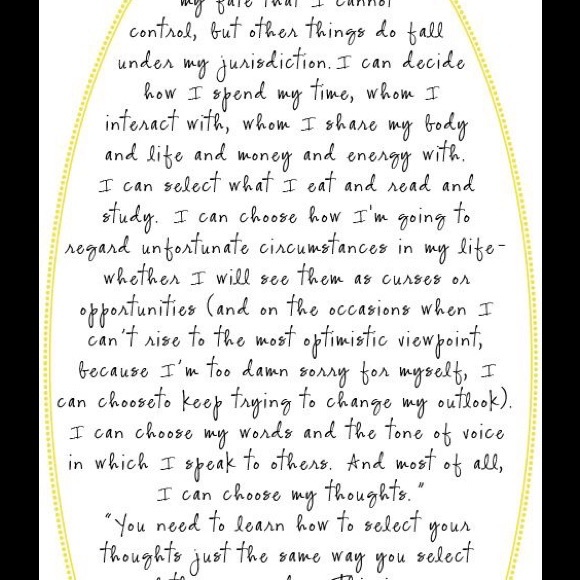 my fate that I cannot
control, but other things do fall
under my jurisdiction. I can decide
how I spend my time, whom I
interact with, whom I share my body
and life and money and energy with.
I can select what I eat and read and
study. I can choose how I'm going to
regard unfortunate circumstances in my life-
whether I will see them as curses or
opportunities (and on the occasions when I
can't rise to the most optimistic viewpoint,
because I'm too damn sorry for myself, I
can chooseto keep trying to change my outlook).
I can choose my words and the tone of voice
in which I speak to others. And most of all,
I can choose my thoughts."
"You need to learn how to select your
thoughts just the same way you select